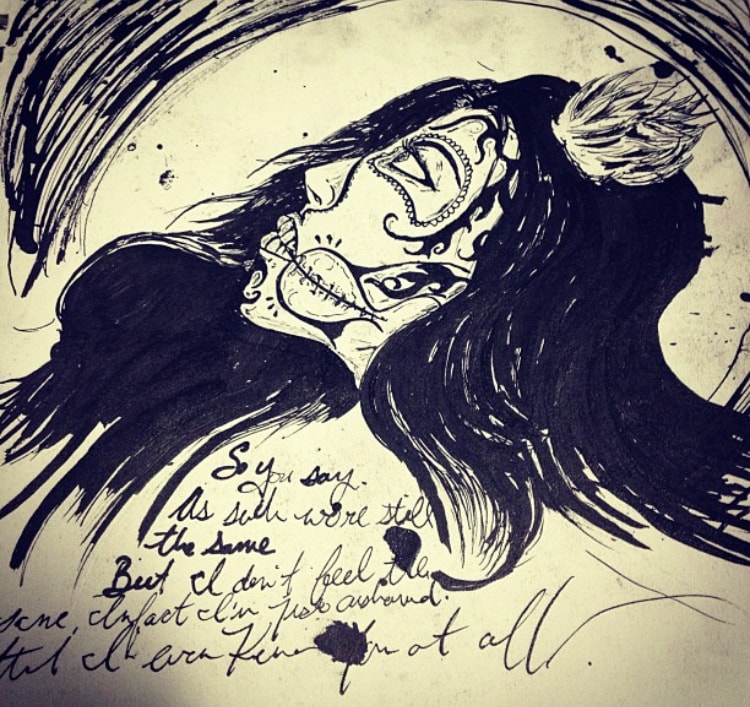 So you say.
As such we're still
the same
But I don't feel the
same, Infact I'm just ashamed.
that I even Knew You at all.